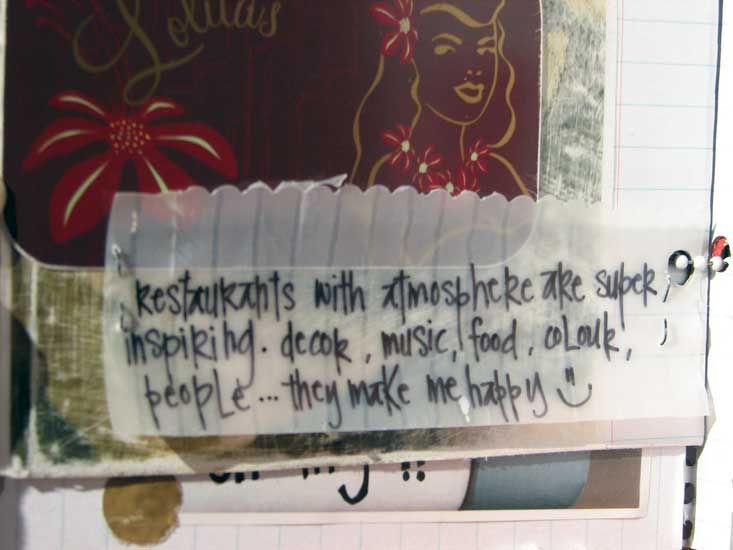 Lolita's
restaurants with atmosphere are super
inspiring. decor, music, food, colour,
people... they make me happy